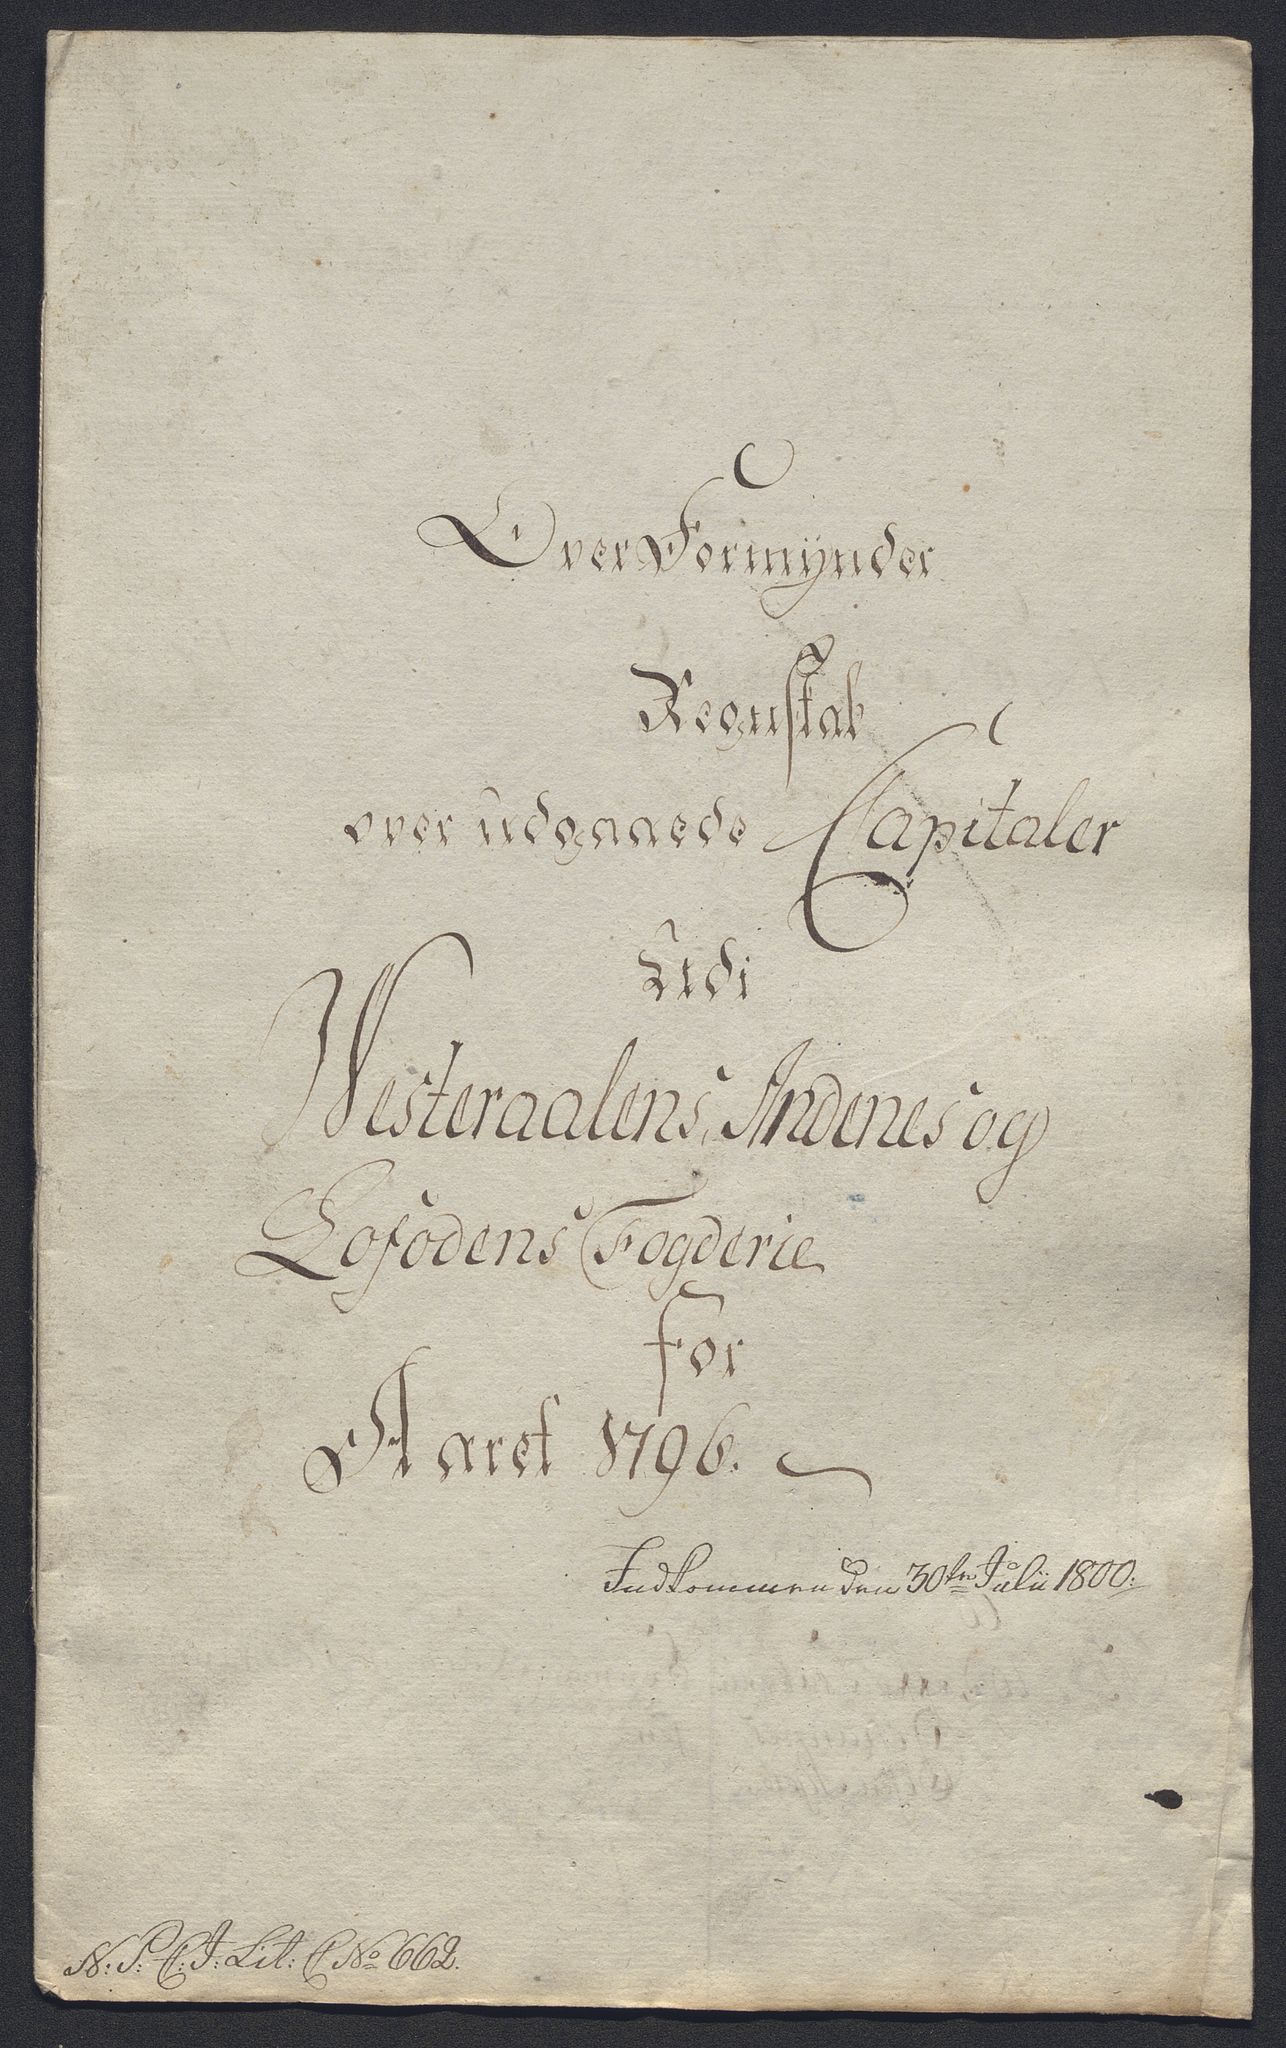 Over Formÿnder
Regnskab
over udgaaede Capitaler
Udi
Westeraalens, Andenes og
Lofodens Fogderie
for
Aaret 1796.
Indkommen den 30te Julii 1800.
N. P. C. I. Lit: C No 662.